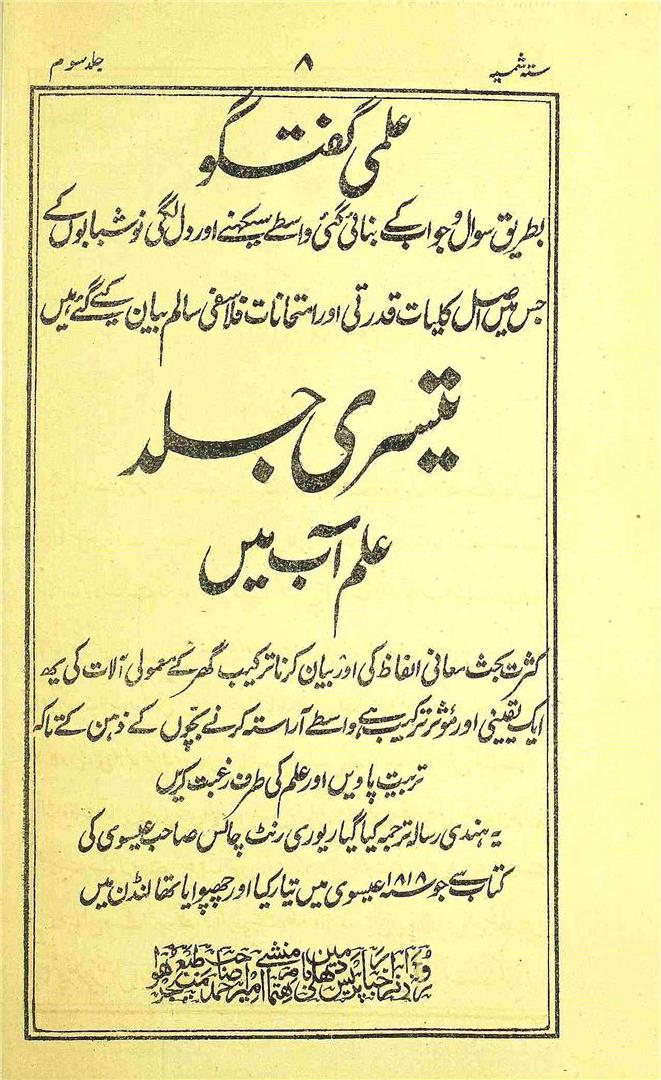 ستہ شمسیہ ۸ جلد سوم
علمی گفتگو
بطریق سوال و جواب کے بنائی گئی واسطے سیکھنے اور دل لگی نوشبابوں کے
جس میں اصل کلیات قدرتی اور امتحانات فلاسفی سالم بیان کیے گئے ہیں
تیسری جلد
علم آب میں
کثرت بحث معانی الفاظ کی اور بیان کرنا ترکیب گھر کے معمولی آلات کی یہ
ایک یقینی اور مؤثر ترکیب ہے واسطے آراستہ کرنے بچّوں کے ذہن کے تاکہ
تربیت پاویں اور علم کی طرف رغبت کریں
یہ ہندی رسالہ ترجمہ کیا گیا ریوری رنٹ چالس صاحب عیسوی کی
کتاب سے جو سنہ ۱۸۱۸ عیسوی میں تیار کیا اور چھپوایا تھا لنڈن میں